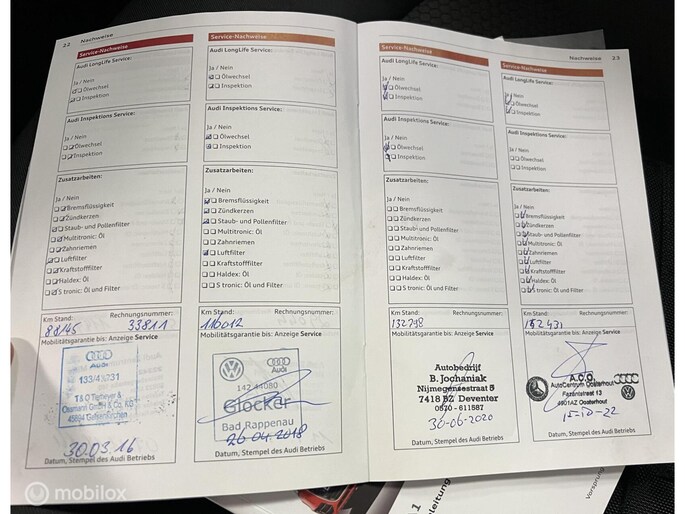 22 Nachweise
Service-Nachweise
Audi LongLife Service:
Ja / Nein
Ölwechsel
Inspektion
Audi Inspektions Service:
Ja / Nein
Ölwechsel
Inspektion
Zusatzarbeiten:
Ja / Nein
Bremsflüssigkeit
Zündkerzen
Staub- und Pollenfilter
Multitronic: Öl
Zahnriemen
Luftfilter
Kraftstofffilter
Haldex: Öl
S tronic: Öl und Filter
Km Stand: Rechnungsnummer:
33811
Mobilitätsgarantie bis: Anzeige Service
Audi
45894 Gelsenkirchen
30.03.16
Datum, Stempel des Audi Betriebs
Service-Nachweise
Audi LongLife Service:
Ja / Nein
Ölwechsel
Inspektion
Audi Inspektions Service:
Ja / Nein
Ölwechsel
Inspektion
Zusatzarbeiten:
Ja / Nein
Bremsflüssigkeit
Zündkerzen
Staub- und Pollenfilter
Multitronic: Öl
Zahnriemen
Luftfilter
Kraftstofffilter
Haldex: Öl
S tronic: Öl und Filter
Km Stand: Rechnungsnummer:
116012
Mobilitätsgarantie bis: Anzeige Service
Audi
Glocker
Bad Rappenau
26.04.2018
Datum, Stempel des Audi Betriebs
Service-Nachweise
Audi LongLife Service:
Ja / Nein
Ölwechsel
Inspektion
Audi Inspektions Service:
Ja / Nein
Ölwechsel
Inspektion
Zusatzarbeiten:
Ja / Nein
Bremsflüssigkeit
Zündkerzen
Staub- und Pollenfilter
Multitronic: Öl
Zahnriemen
Luftfilter
Kraftstofffilter
Haldex: Öl
S tronic: Öl und Filter
Km Stand: Rechnungsnummer:
132798
Mobilitätsgarantie bis: Anzeige Service
Autobedrijf
B. Jochaniak
Nijmegensestraat 5
7418 BZ Deventer
0570 - 611587
30-06-2020
Datum, Stempel des Audi Betriebs
Nachweise 23
Service-Nachweise
Audi LongLife Service:
Ja / Nein
Ölwechsel
Inspektion
Audi Inspektions Service:
Ja / Nein
Ölwechsel
Inspektion
Zusatzarbeiten:
Ja / Nein
Bremsflüssigkeit
Zündkerzen
Staub- und Pollenfilter
Multitronic: Öl
Zahnriemen
Luftfilter
Kraftstofffilter
Haldex: Öl
S tronic: Öl und Filter
Km Stand: Rechnungsnummer:
162431
Mobilitätsgarantie bis: Anzeige Service
A.C.O.
AutoCentrum Oosterhout
Fazantstraat 13
4901AZ Oosterhout
15-10-22
Datum, Stempel des Audi Betriebs
Vorsprung
mobilox